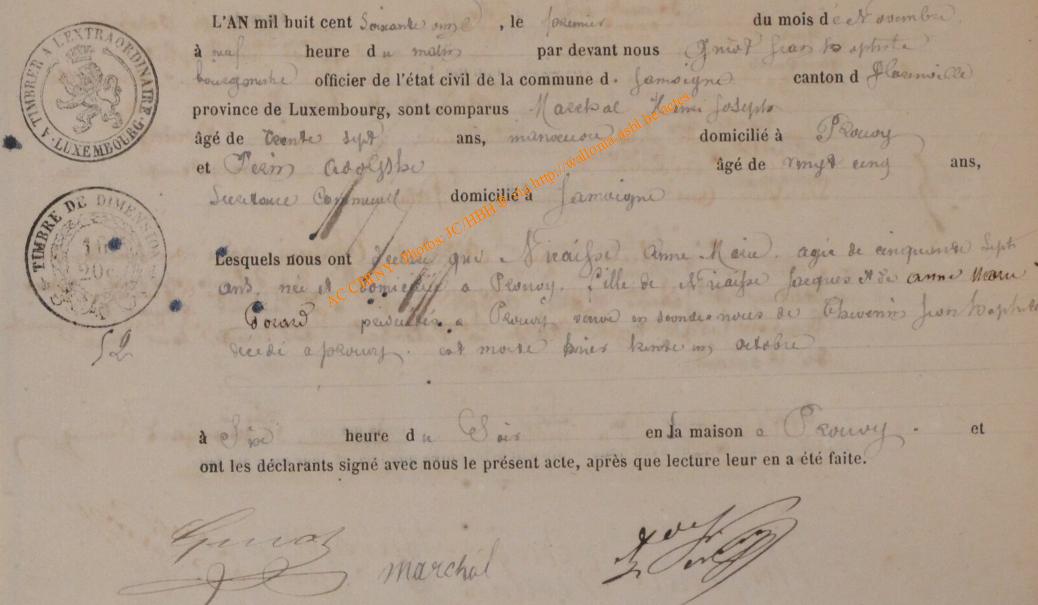 L'AN mil huit cent Soixante onze, le premier du mois de Novembre
à neuf heure du matin par devant nous Jean baptiste
bourgmestre officier de l'état civil de la commune d. Jamoigne canton d florenville
province de Luxembourg, sont comparus Marchal Henri Joseph
âgé de trente sept ans, manoeuvre domicilié à Prouvy
et Perin Adolphe âgé de vingt cinq ans,
Secrétaire Communal domicilié à Jamoigne
Lesquels nous ont déclaré que Nicaisse Anne Marie agée de cinquante Sept
ans née et domiciliée a Prouvy, fille de Nicaisse Jacques et de anne Marie
décédés a Prouvy veuve en secondes noces de Thevenin Jean baptiste
décédé a prouvy. est morte hier trente un octobre
à Six heure du Soir en la maison a Prouvy. et
ont les déclarants signé avec nous le présent acte, après que lecture leur en a été faite.
marchal
A TIMBRER A L'EXTRAORDINAIRE
LUXEMBOURG
TIMBRE DE DIMENSION
20c
52
AC CHINY - Photos: JC HBH & via http://wallonia.asbl.be/actes